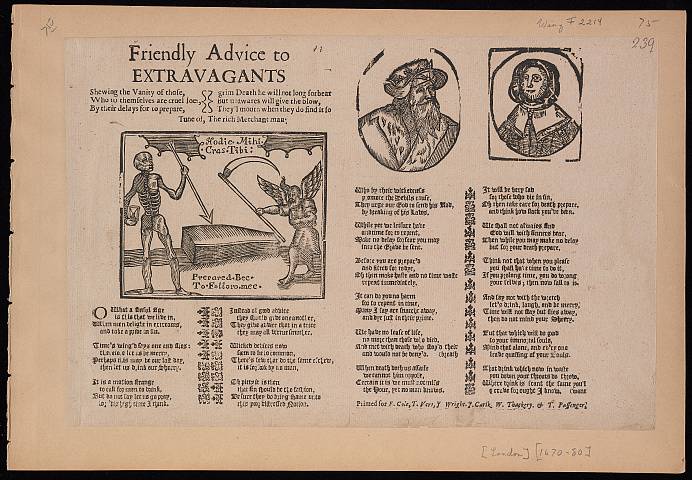 Wing F 2214
75
239
Friendly Advice to
EXTRAVAGANTS
Shewing the Vanity of those,
Who to themselves are cruel foe,
By their delays for to prepare,
grim Death he will not long forbear
But unawares will give the blow,
They'l mourn when they do find it so
Tune of, The rich Merchant man;
Hodie Mihi
Cras Tibi:
Prepared Bee
To Follow mee
O What a sinful Age
is this that we live in,
When men delight in extreams,
and take a pride in sin.
Time's wing'd eyes one and
let us be merry,
Perhaps this may be our last day,
then let us drink our
It is a motion strange
to call for men to drink,
But do not say let us go pray,
'tis high time I think.
Instead of good advice
they should give one another,
They give advice that in a trice
they may
Wicked devices now
seem to be so common,
There's few that do the same eschew,
it is in man.
Oh pity it is then
that sin should be the fashion,
Be sure they do bring shame unto
this poor distressed Nation.
Who by their wickedness
promote the Devils cause,
They urge our God to send his Rod,
by breaking of his Laws.
While yet we leisure have
and time for to repent,
Make no delay for fear you may
into the Grave be sent.
Before you are prepar'd
and fitted for to dye,
Oh then make haste and no time waste
repent immediately.
It can be no harm
for to repent in time,
Many I say are sickly away,
and dye just in their prime.
We have no lease of life,
no more than those who's died,
And met with death who stay'd their
and would not be deny'd. (breath
When death doth us assail
we cannot him oppose,
Certain it is we must
the Hour, yet no man knows.
It will be very sad
for those who die in sin,
Oh then take care for death prepare,
and think how slack you've been.
We shall not always
God will with sinners bear,
Then while you may make no delay
but for your death prepare.
Think not that when you please
you shall have time to do it,
If you prolong time, you do wrong
your selves; then now fall to it.
And say not with the wretch
let's drink, laugh, and be merry,
Time will not stay but flies away,
then do not mind your Sherry.
But that which will do good
to your immortal souls,
Mind that alone, and let's one
leave quaffing of your Bouls.
That drink which now in waste
you down your throats do throw,
Where drink is scant the same you'l
I know. (want
Printed for F. Cole, T. Vere, J. Wright, J. Clark, W. Thackery, & T. Passenger.
[London] [1670-80]